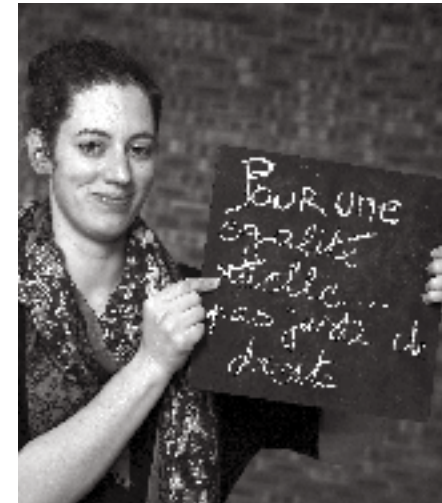 Pour une
égalité
réelle...
pas juste de
droits